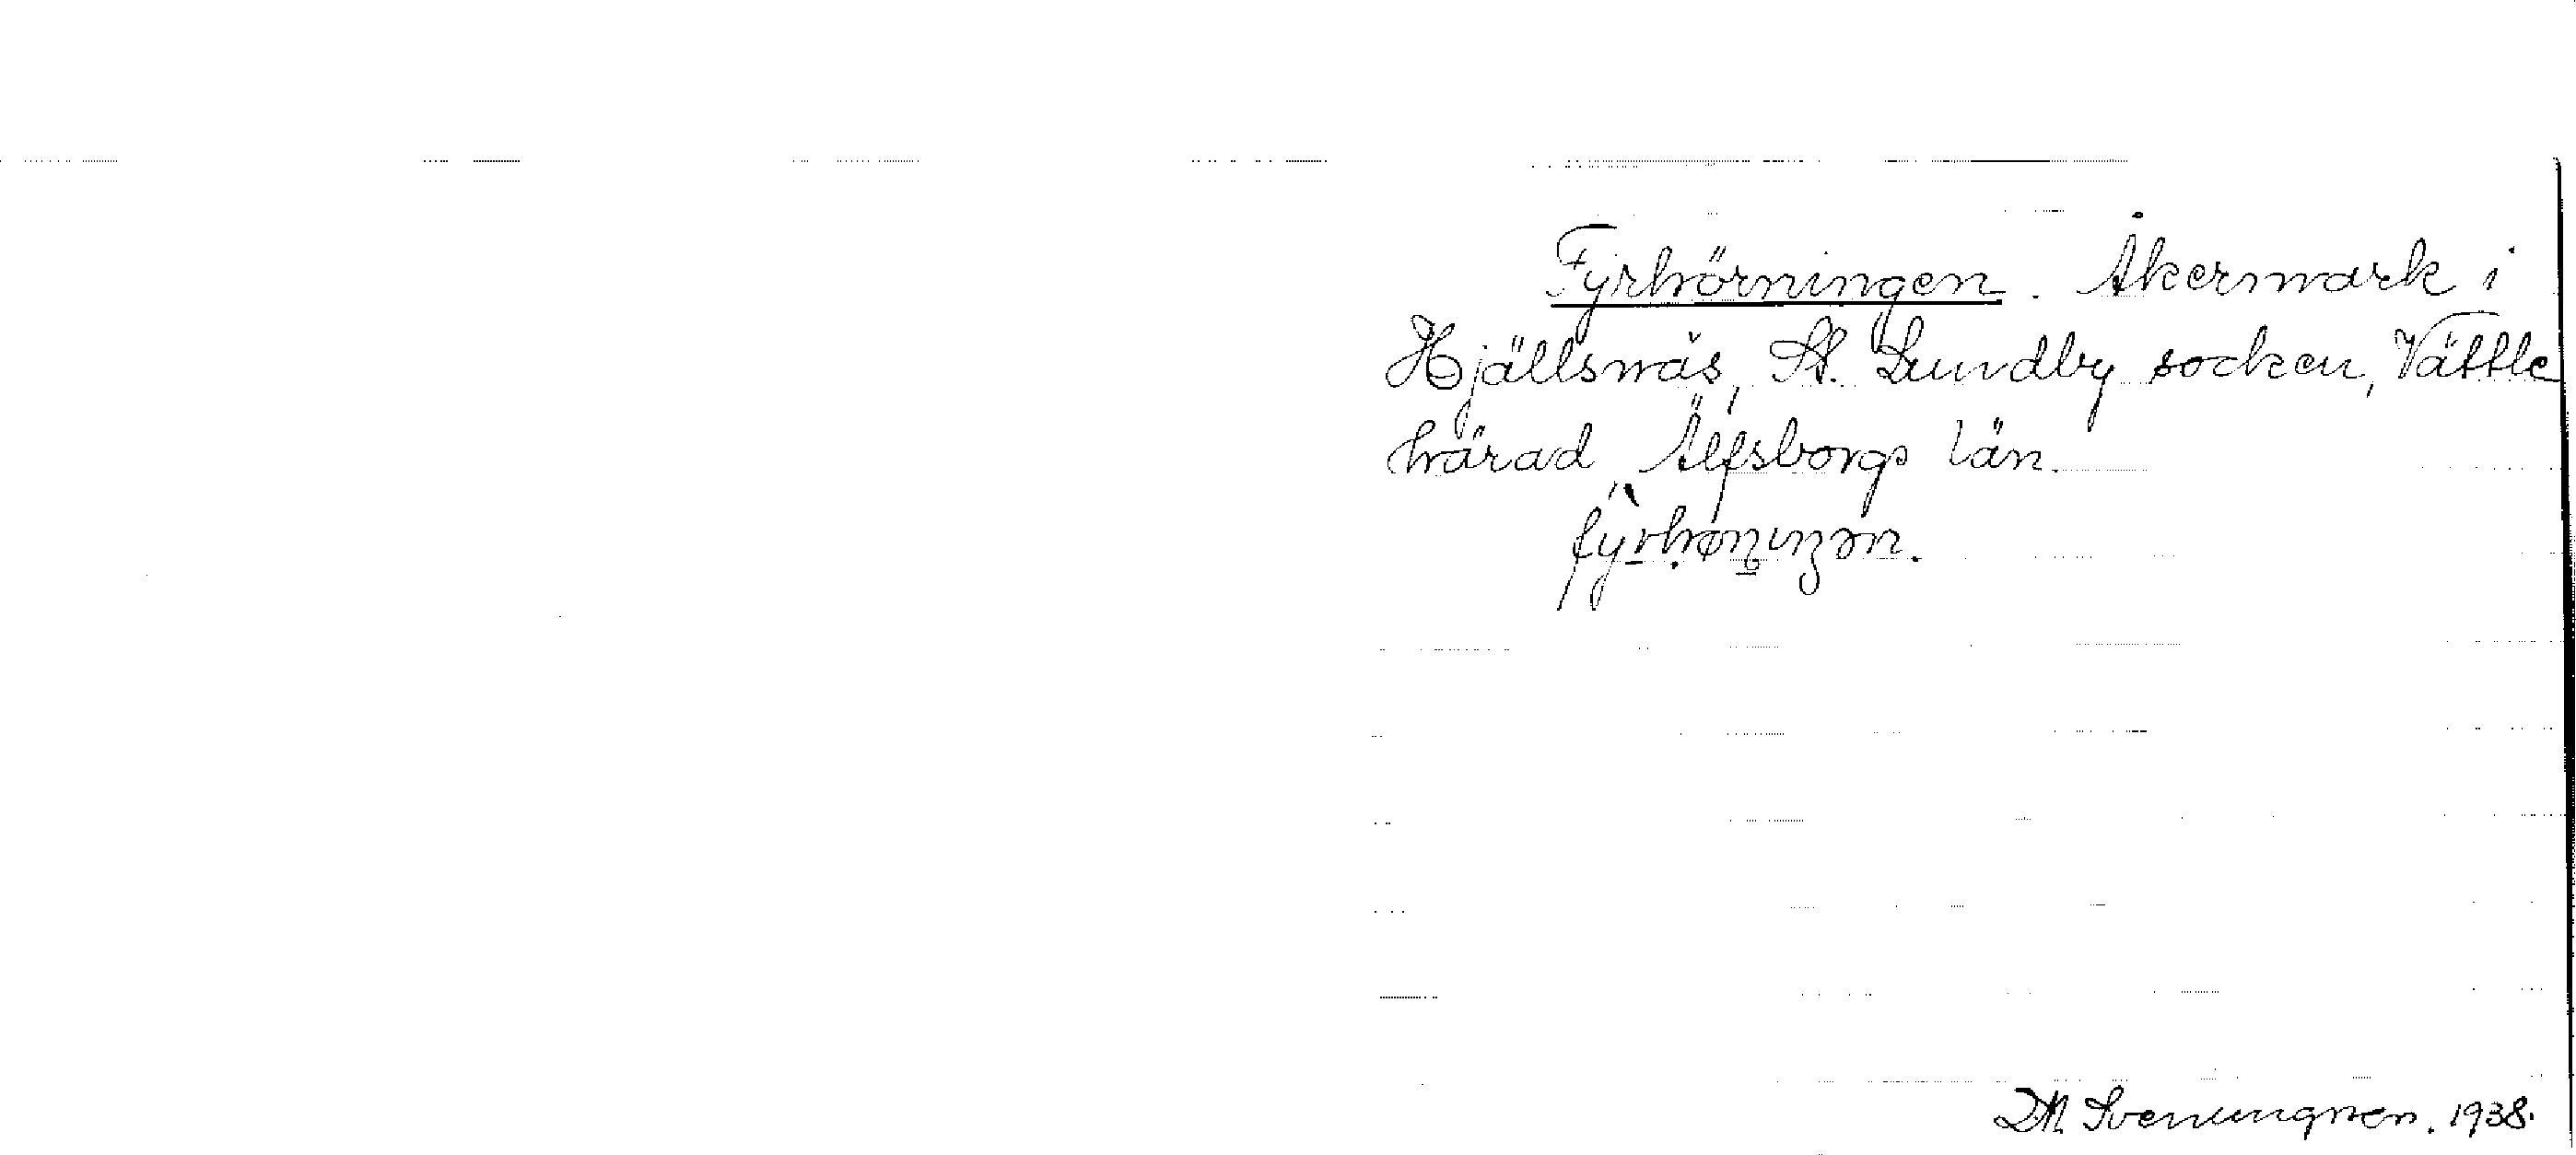 Fyrhörningen. Åkermark i
Hjällsnäs, St. Lundby socken, Vättle
härad, Älfsborgs län.
fy̆̀rhøṇıŋən.
DM. Svenungsson. 1938.